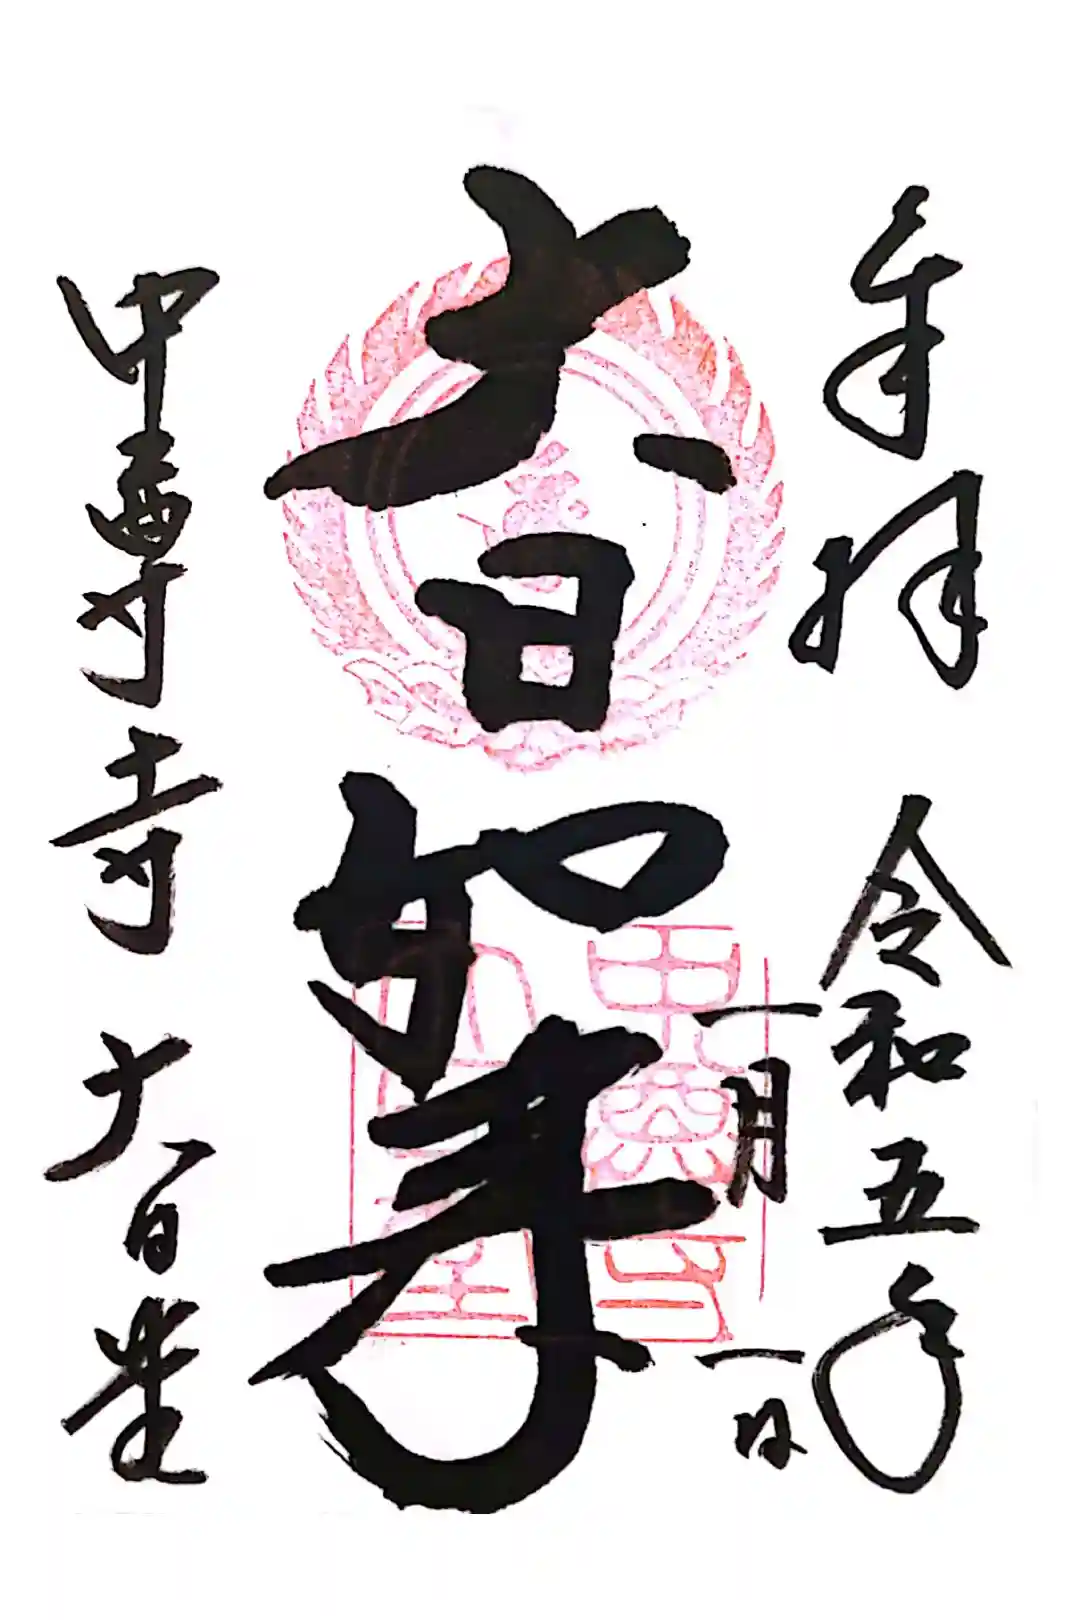 奉拝 令和五年
一月一日
大日如来
中尊寺 大日堂